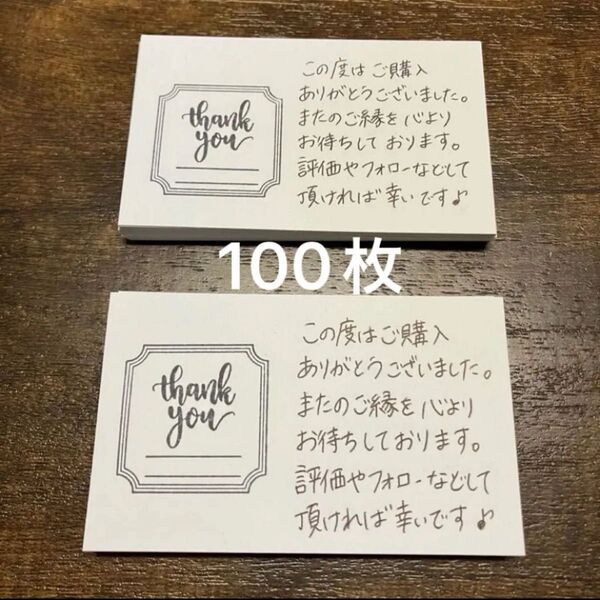 thank
you
この度はご購入
ありがとうございました。
またのご縁を心より
お待ちしております。
評価やフォローなどして
頂ければ幸いです♪
100枚
thank
you
この度はご購入
ありがとうございました。
またのご縁を心より
お待ちしております。
評価やフォローなどして
頂ければ幸いです♪